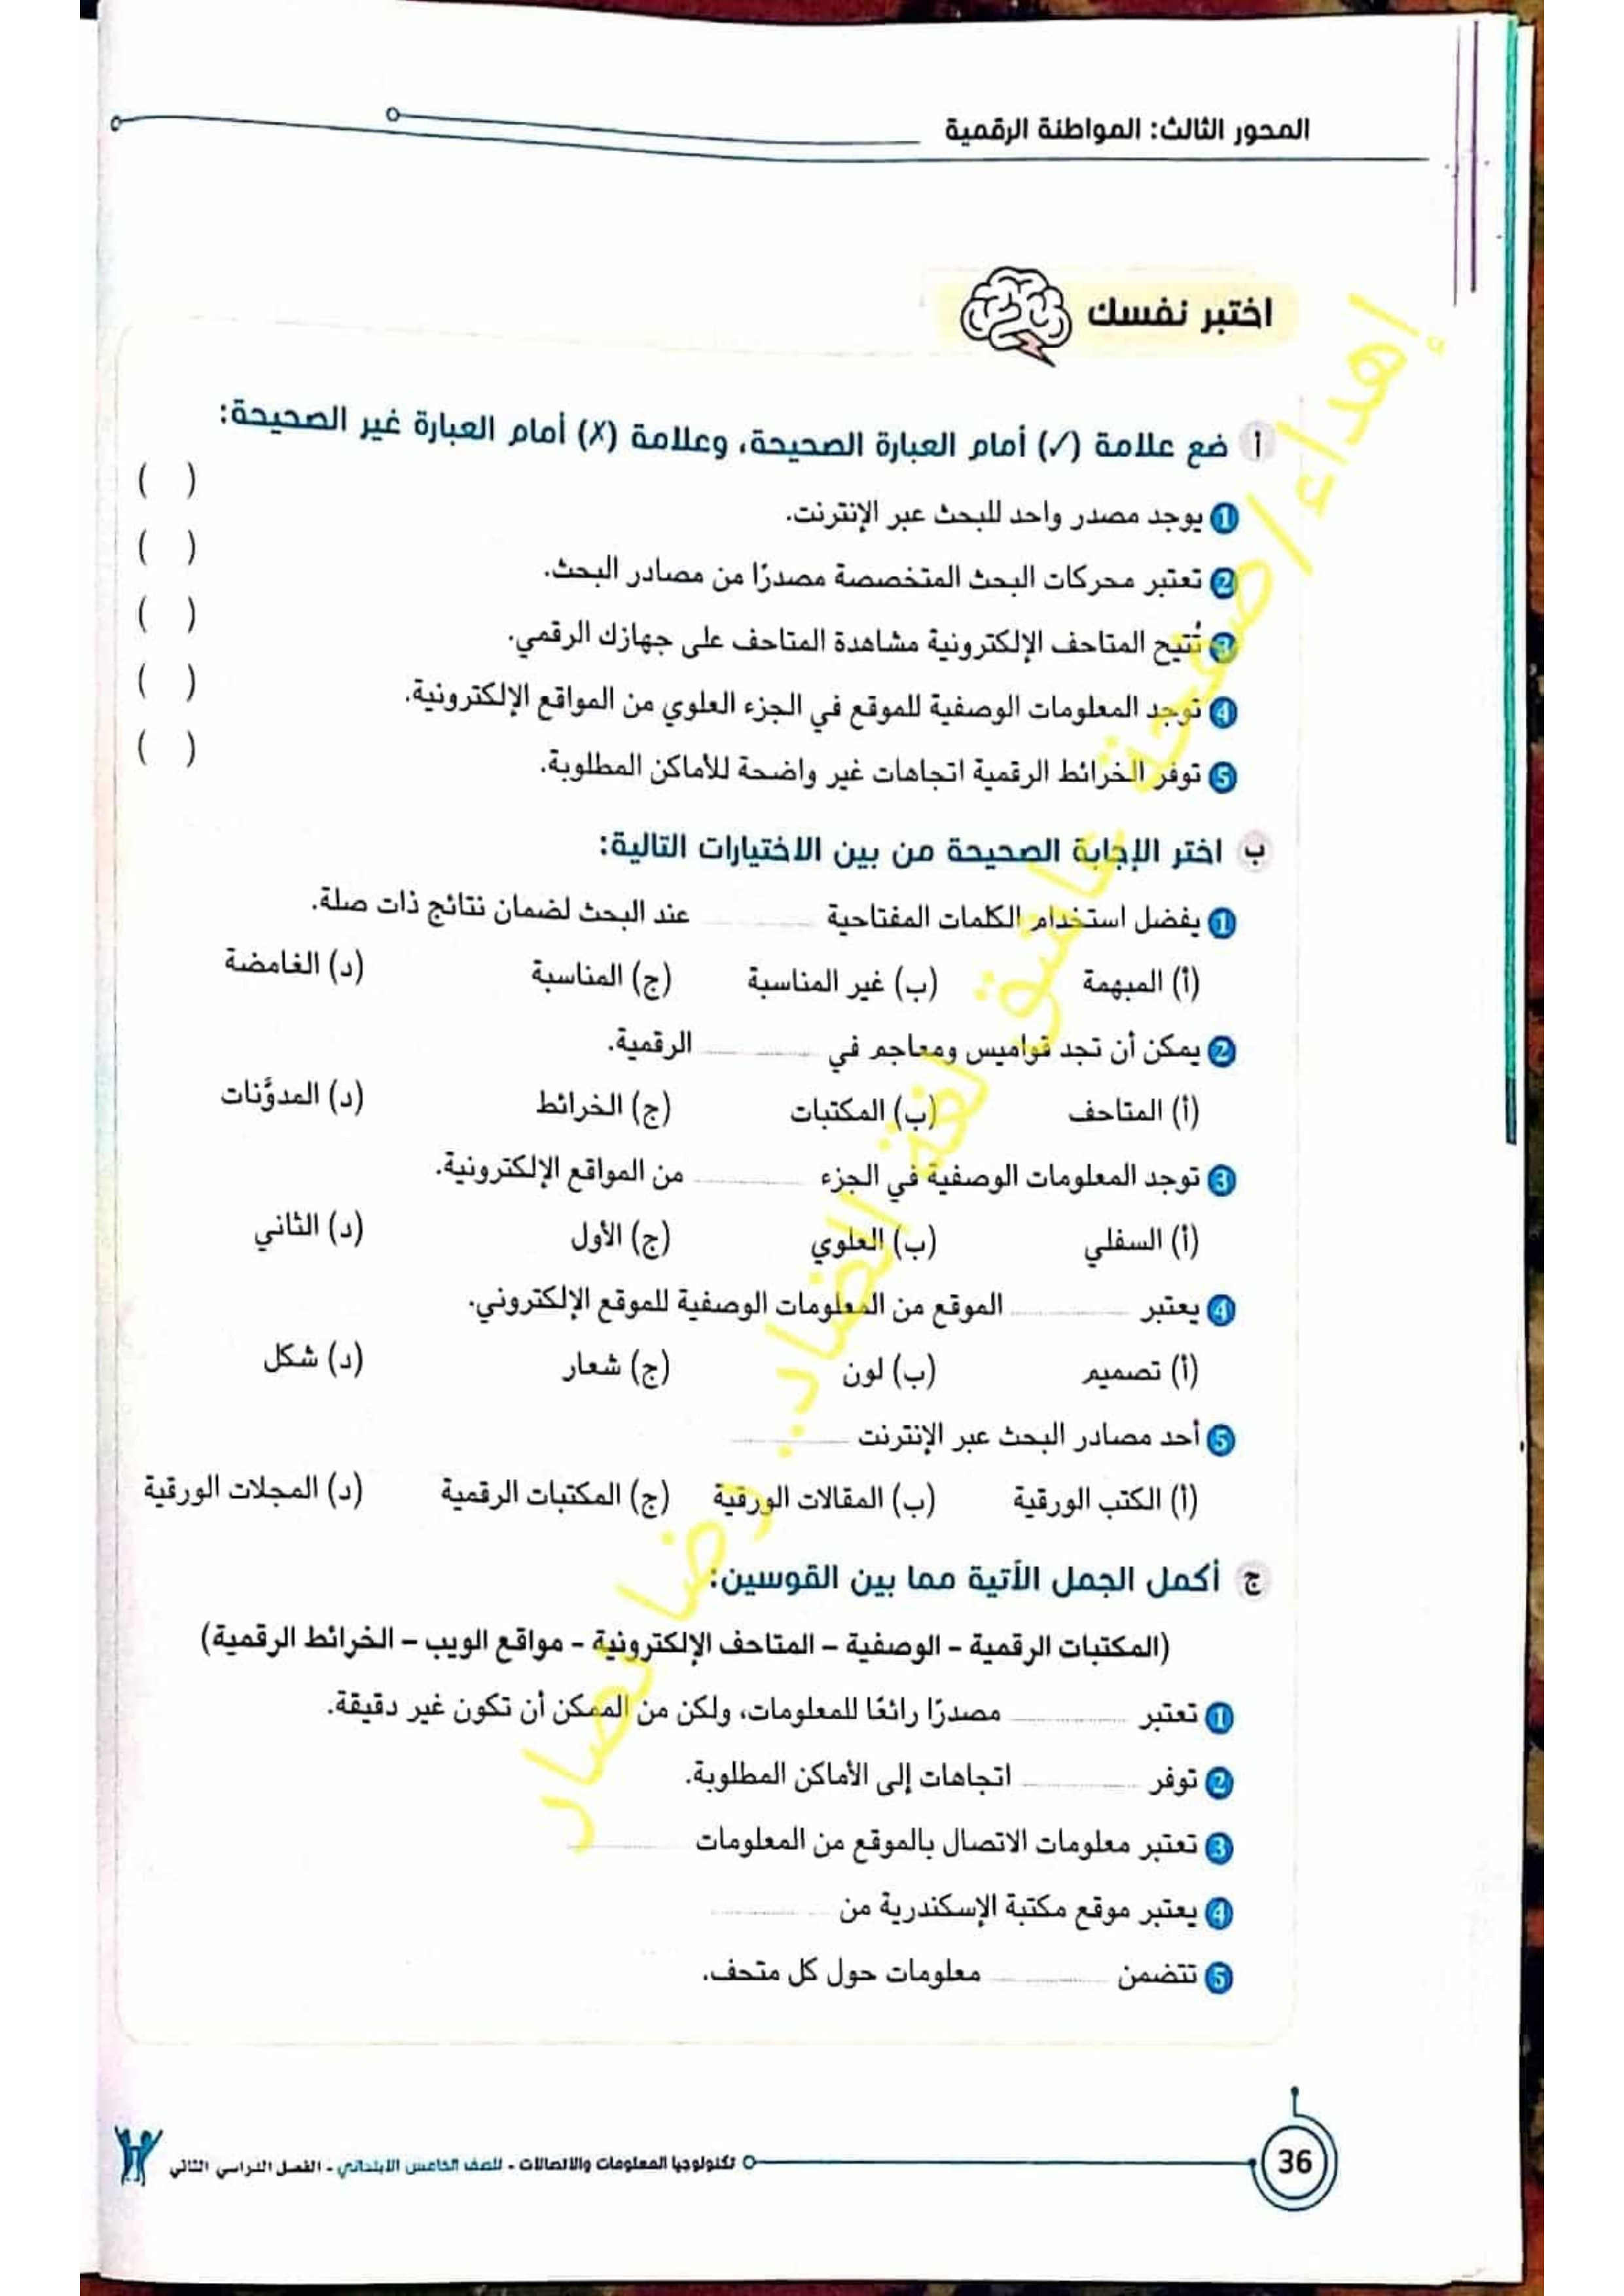 المحور الثالث: المواطنة الرقمية
اختبر نفسك
أ ضع علامة (✓) أمام العبارة الصحيحة، وعلامة (✗) أمام العبارة غير الصحيحة:
1 يوجد مصدر واحد للبحث عبر الإنترنت. ( )
2 تعتبر محركات البحث المتخصصة مصدرًا من مصادر البحث. ( )
3 تُتيح المتاحف الإلكترونية مشاهدة المتاحف على جهازك الرقمي. ( )
4 توجد المعلومات الوصفية للموقع في الجزء العلوي من المواقع الإلكترونية. ( )
5 توفر الخرائط الرقمية اتجاهات غير واضحة للأماكن المطلوبة. ( )
ب اختر الإجابة الصحيحة من بين الاختيارات التالية:
1 يفضل استخدام الكلمات المفتاحية ............ عند البحث لضمان نتائج ذات صلة.
(أ) المبهمة (ب) غير المناسبة (ج) المناسبة (د) الغامضة
2 يمكن أن تجد قواميس ومعاجم في ............ الرقمية.
(أ) المتاحف (ب) المكتبات (ج) الخرائط (د) المدوَّنات
3 توجد المعلومات الوصفية في الجزء ............ من المواقع الإلكترونية.
(أ) السفلي (ب) العلوي (ج) الأول (د) الثاني
4 يعتبر ............ الموقع من المعلومات الوصفية للموقع الإلكتروني.
(أ) تصميم (ب) لون (ج) شعار (د) شكل
5 أحد مصادر البحث عبر الإنترنت ............
(أ) الكتب الورقية (ب) المقالات الورقية (ج) المكتبات الرقمية (د) المجلات الورقية
ج أكمل الجمل الآتية مما بين القوسين:
(المكتبات الرقمية – الوصفية – المتاحف الإلكترونية – مواقع الويب – الخرائط الرقمية)
1 تعتبر ............ مصدرًا رائعًا للمعلومات، ولكن من الممكن أن تكون غير دقيقة.
2 توفر ............ اتجاهات إلى الأماكن المطلوبة.
3 تعتبر معلومات الاتصال بالموقع من المعلومات ............
4 يعتبر موقع مكتبة الإسكندرية من ............
5 تتضمن ............ معلومات حول كل متحف.
إهداء/ صفحة عاشق لغة الضاد.. رضا نصار
36
تكنولوجيا المعلومات والاتصالات - للصف الخامس الابتدائي - الفصل الدراسي الثاني